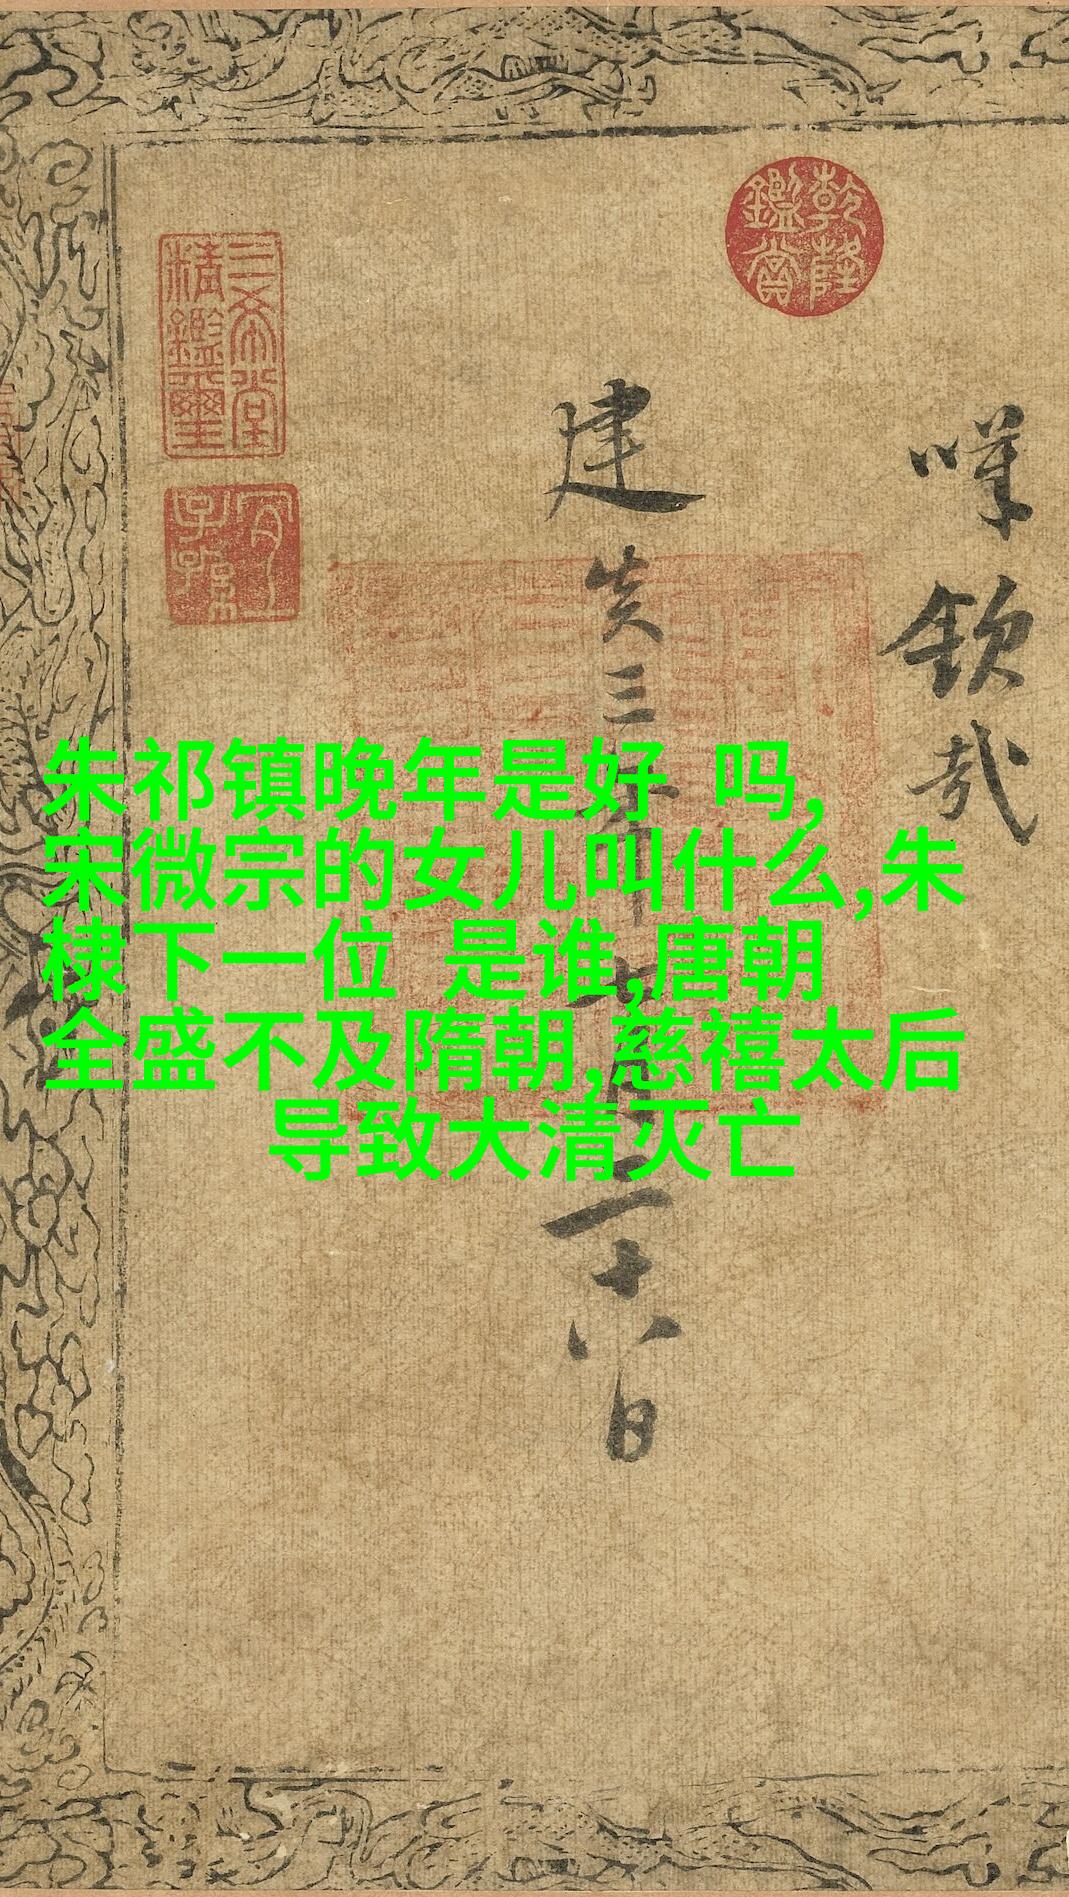 乾隆
鑑賞
三希堂
精鑑璽
宜
子孫
嘆
欽哉
建炎三年
七月二十八日
朱祁镇晚年是好 吗,
宋微宗的女儿叫什么,朱
棣下一位 是谁,唐朝
全盛不及隋朝,慈禧太后
导致大清灭亡